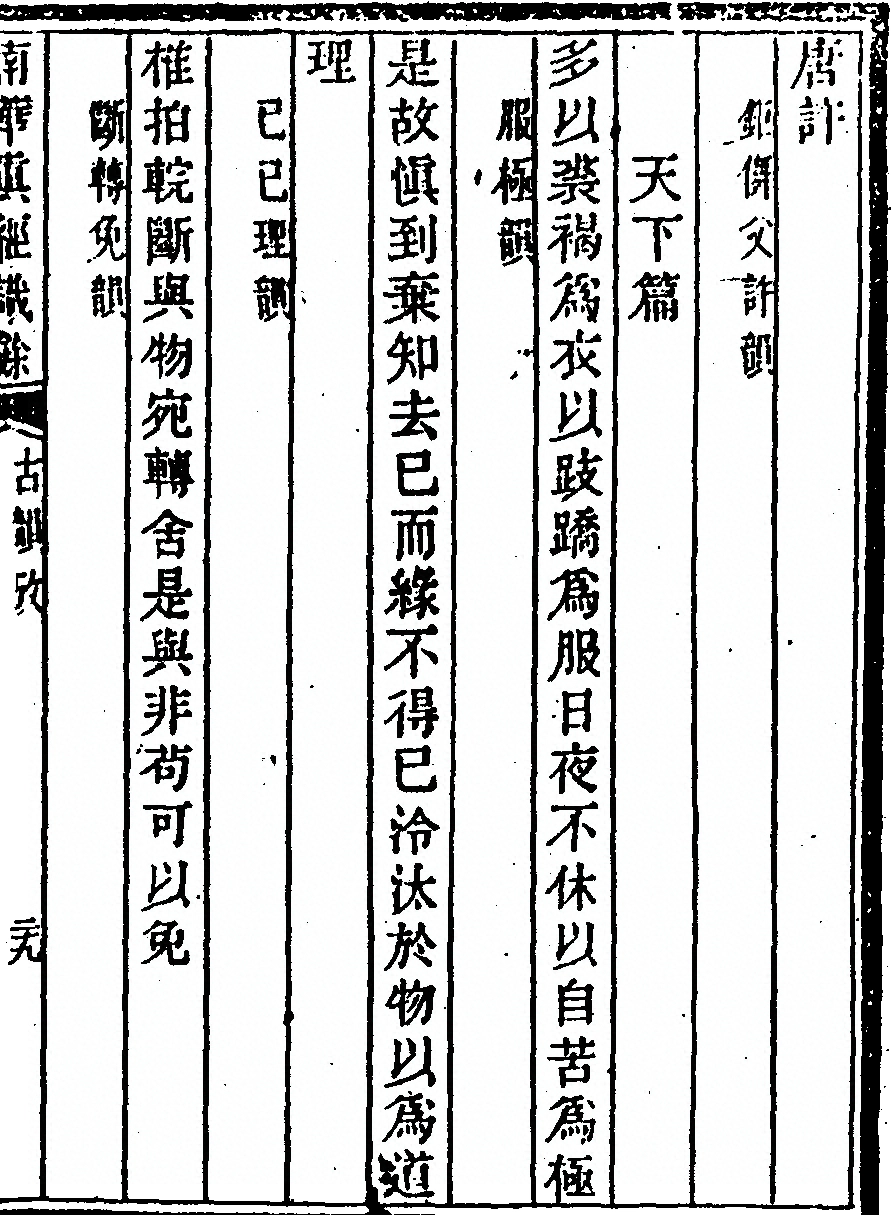 唐許
鉅儛父許韻
天下篇
多以裘褐爲衣以跂蹻爲服日夜不休以自苦爲極
服極韻
是故愼到棄知去已而緣不得已泠汰於物以爲道
理
已已理韻
椎拍輐斷與物宛轉舍是與非苟可以免
斷轉免韻
南華眞經識餘 古韻攷